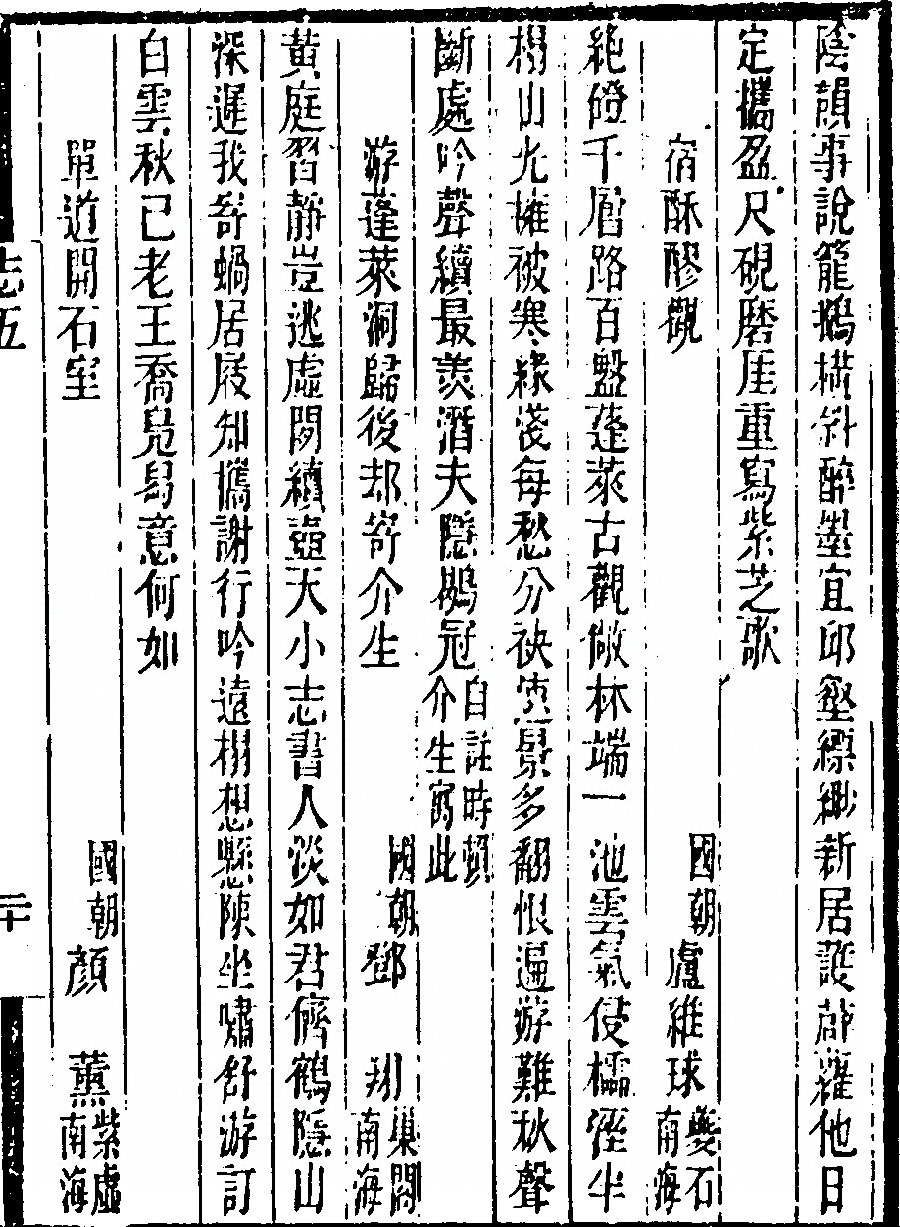 陰韻事說籠鵝橫斜醉墨宜邱壑縹緲新居護薜蘿他日
定攜盈尺硯磨厓重寫紫芝歌
宿酥醪觀 國朝盧維球夔石南海
絶磴千層路百盤蓬萊古觀倣林端一池雲氣侵櫺溼半
榻山光擁被寒緣淺每愁分袂遽景多翻恨遍游難秋聲
斷處吟聲續最羨潛夫隱鶡冠自註時賴介生寓此
游蓬萊洞歸後却寄介生 國朝鄧翔巢閣南海
黃庭習靜豈逃虛閑續壺天小志書人淡如君儕鶴隱山
深遲我寄蝸居屐知攜謝行吟遠榻想懸陳坐嘯舒游訂
白雲秋已老王喬鳧舄意何如
單道開石室 國朝顏薰紫虛南海
志五 二十